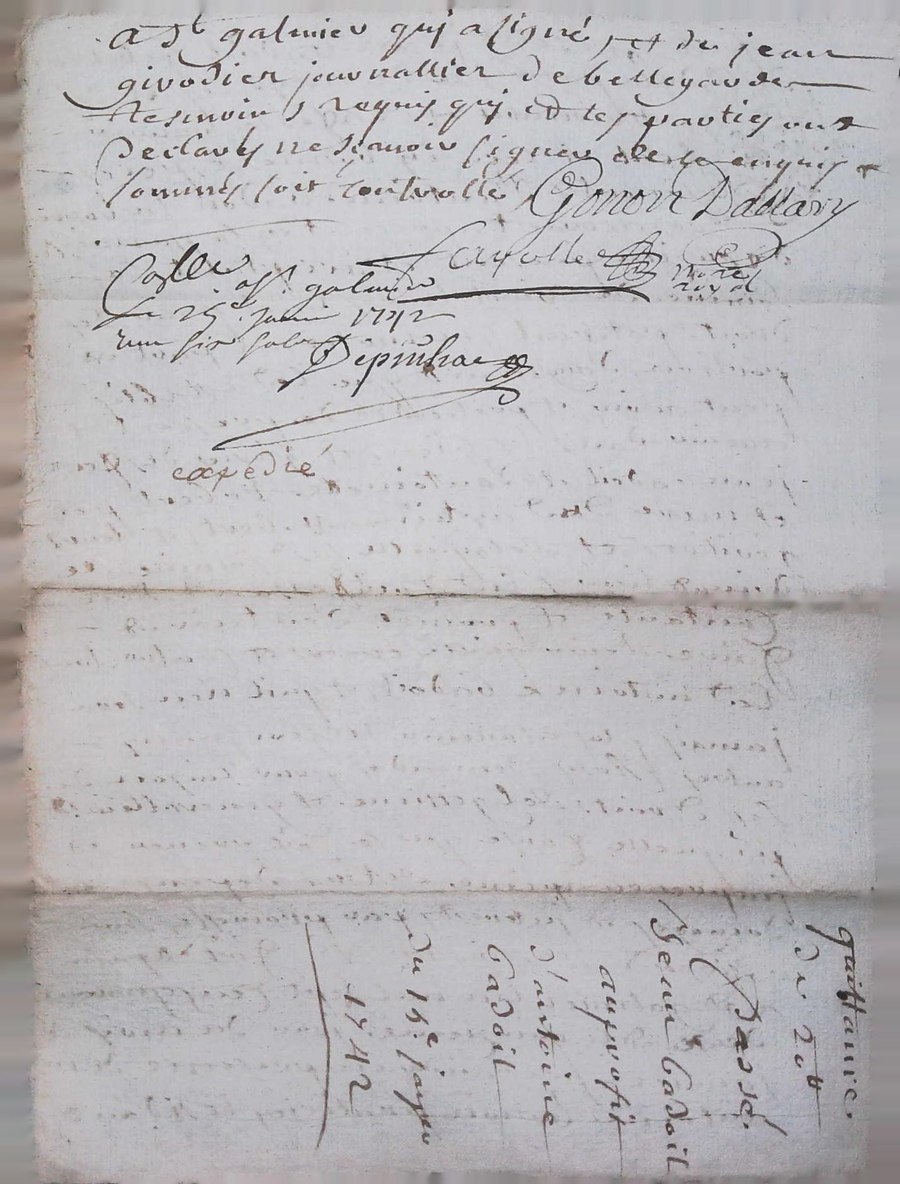 a St galmier quj a signé, et de jean
givodier journallier de bellegarde
tesmoins requis quj et les parties ont
declarés ne scavoir signer de ce enquis et
sommés soit controllé Gonon Dallary
fayolle
no.re royal
Con.lle a St. galmier
le 25e. janvier 1742
douze sols
expedié
quittance
de 20tt
passée.
Jean badoil
auprofit
d'antoine
badoil
du 15e. janvier
1742